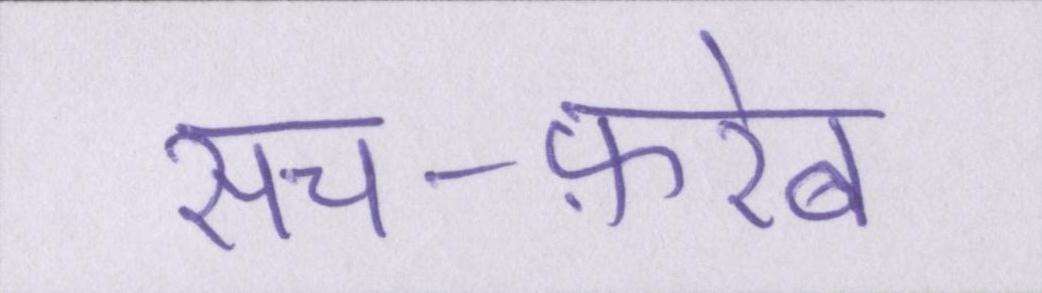 सच-फ़रेब